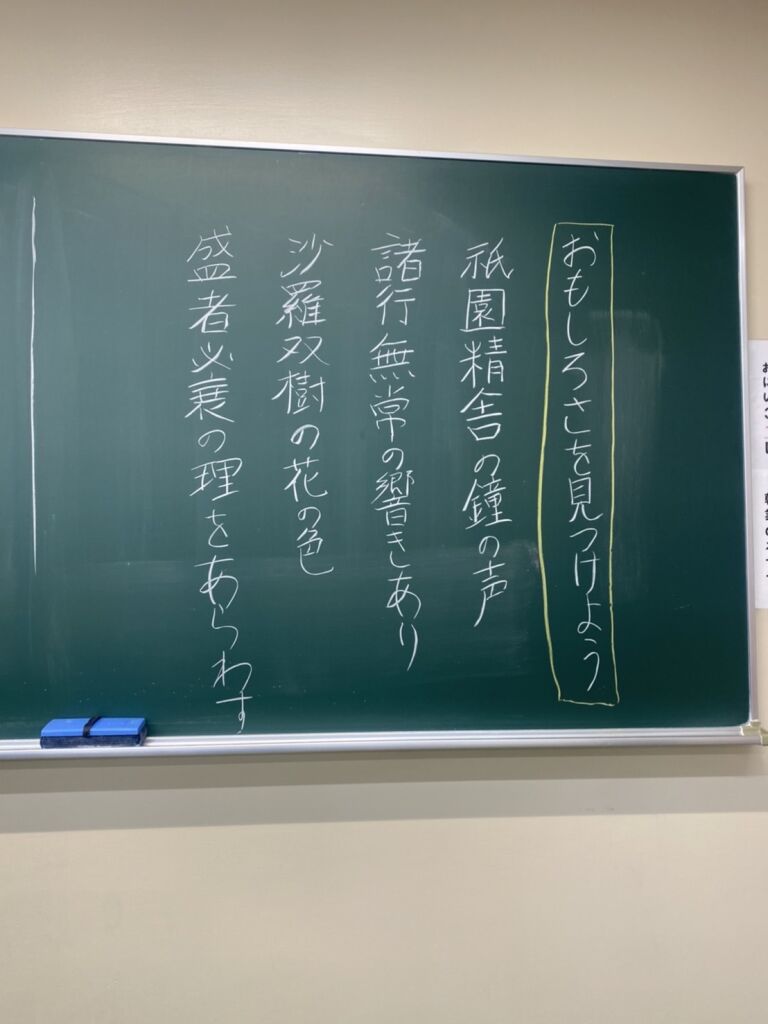 おもしろさを見つけよう
祇園精舎の鐘の声
諸行無常の響きあり
沙羅双樹の花の色
盛者必衰の理をあらわす